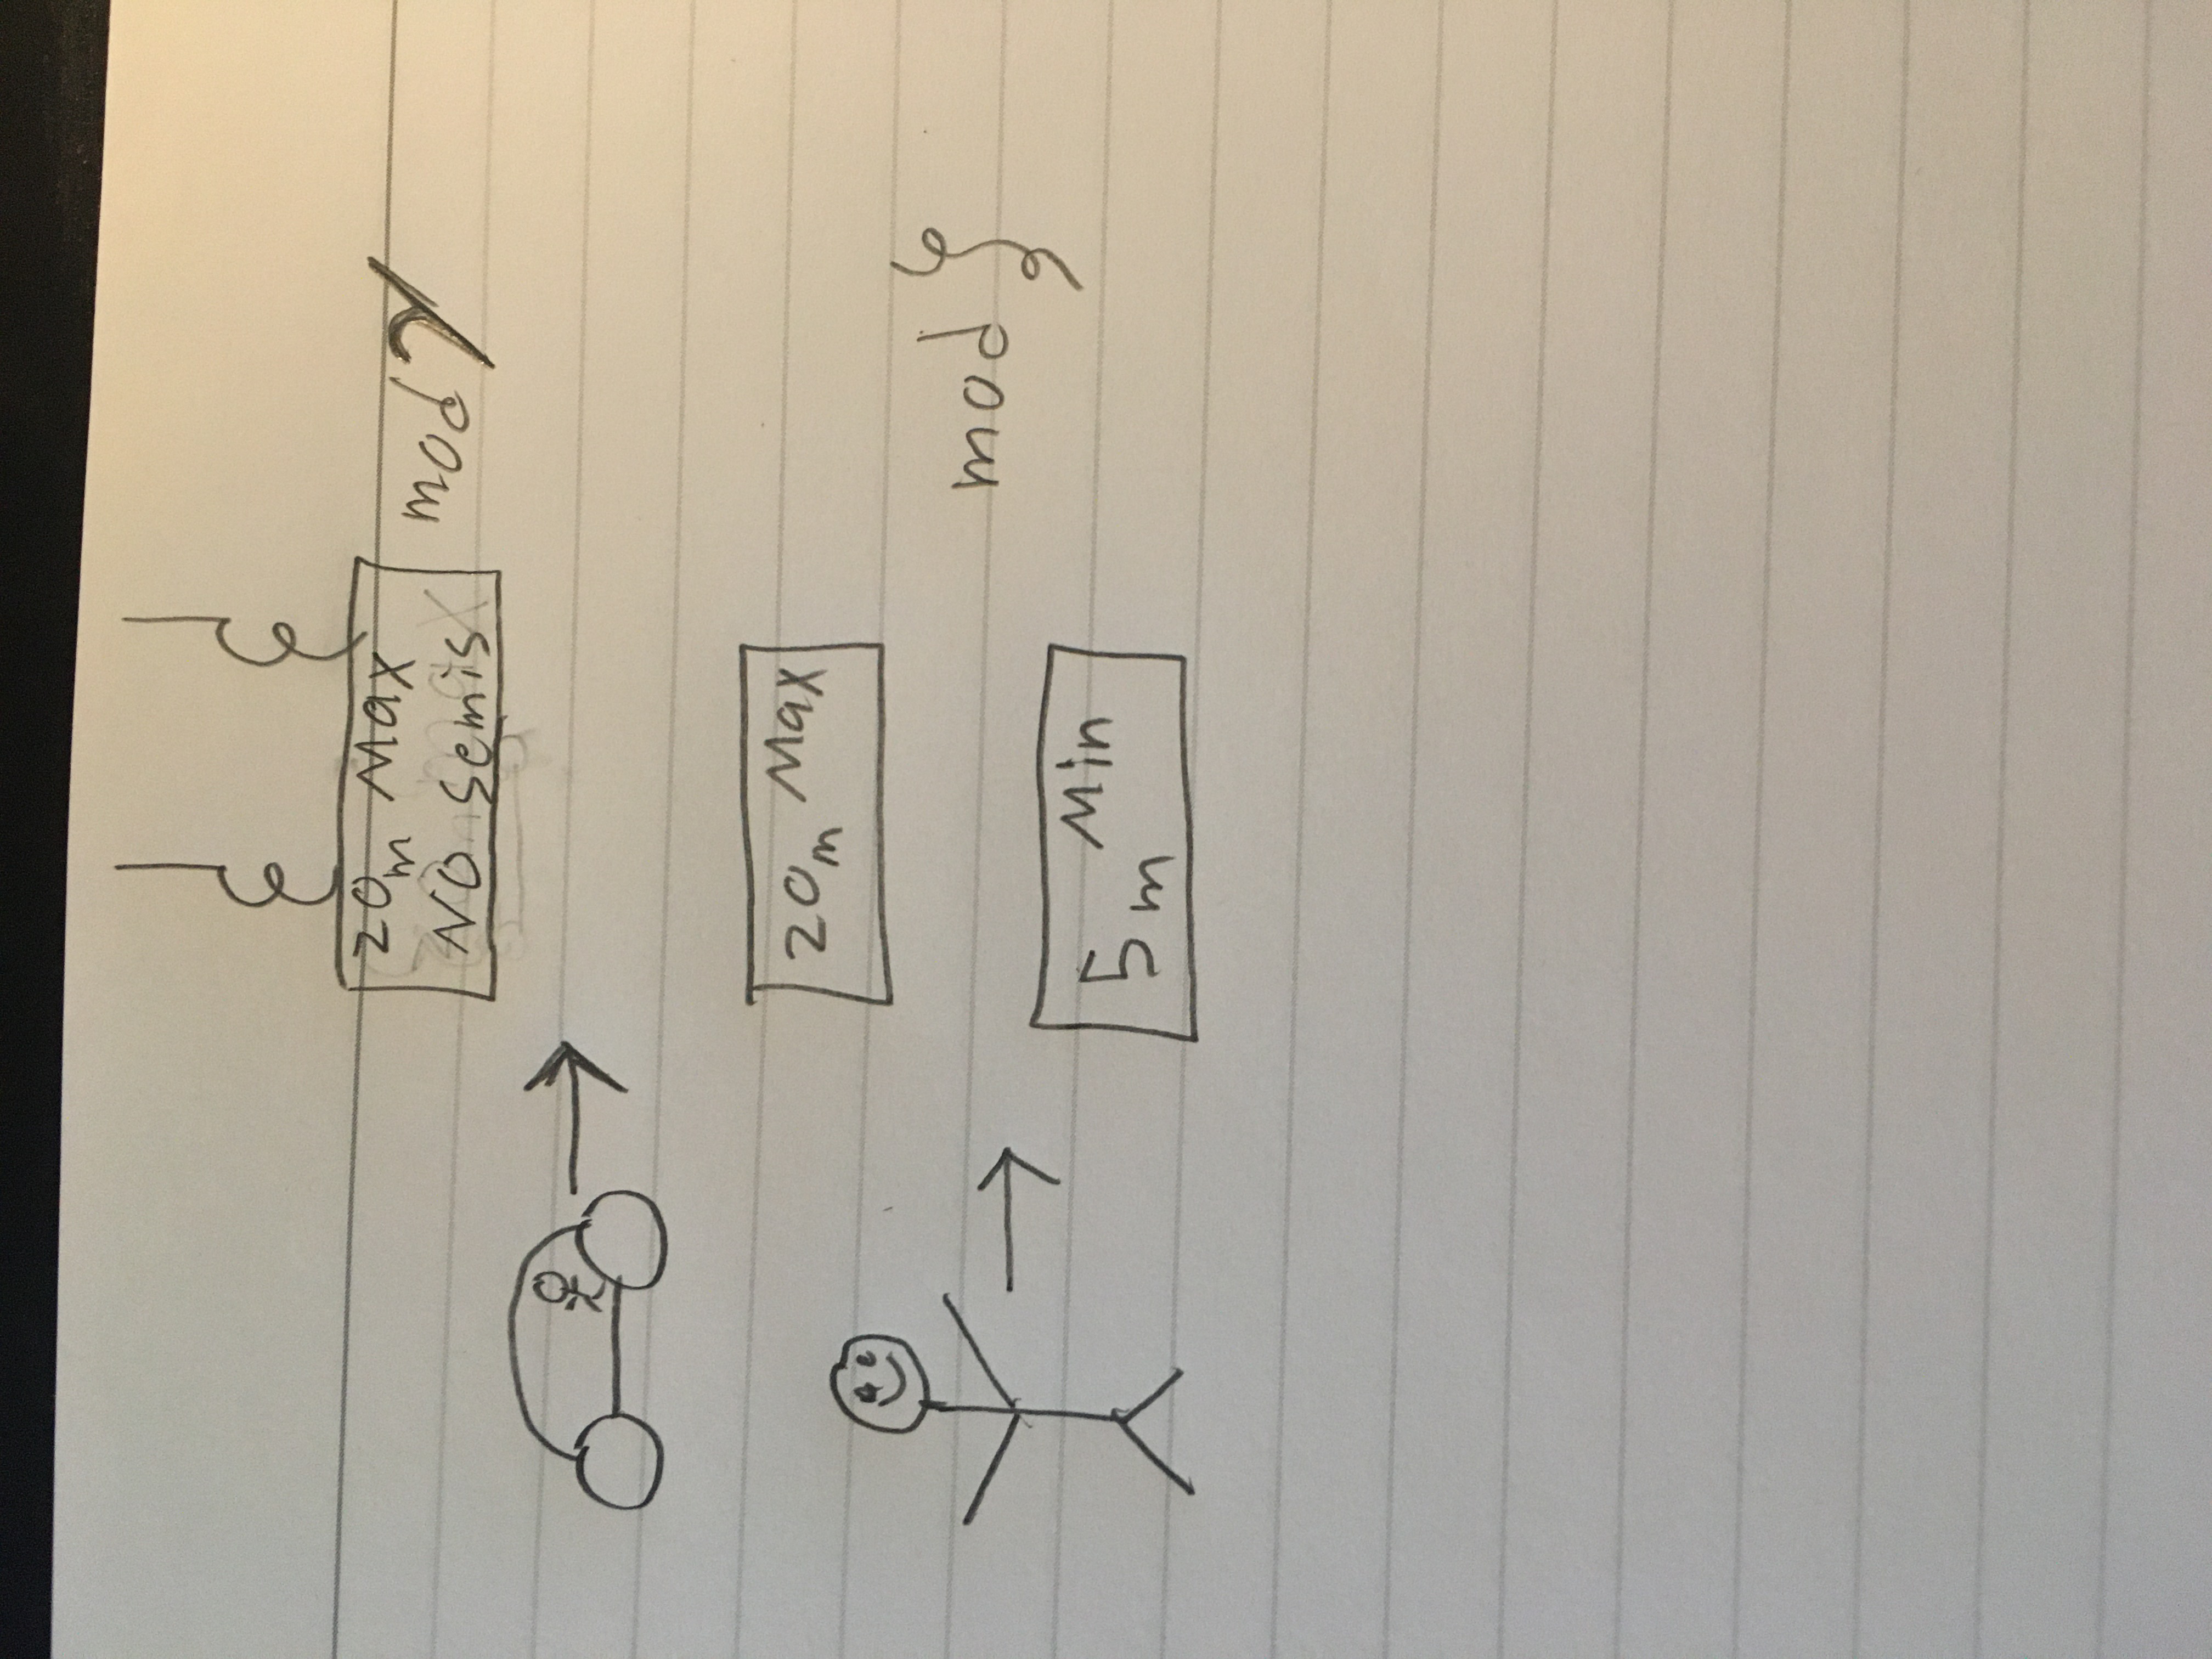 20m Max
NO semis
mod γ
20m Max
mod ξ
5m Min